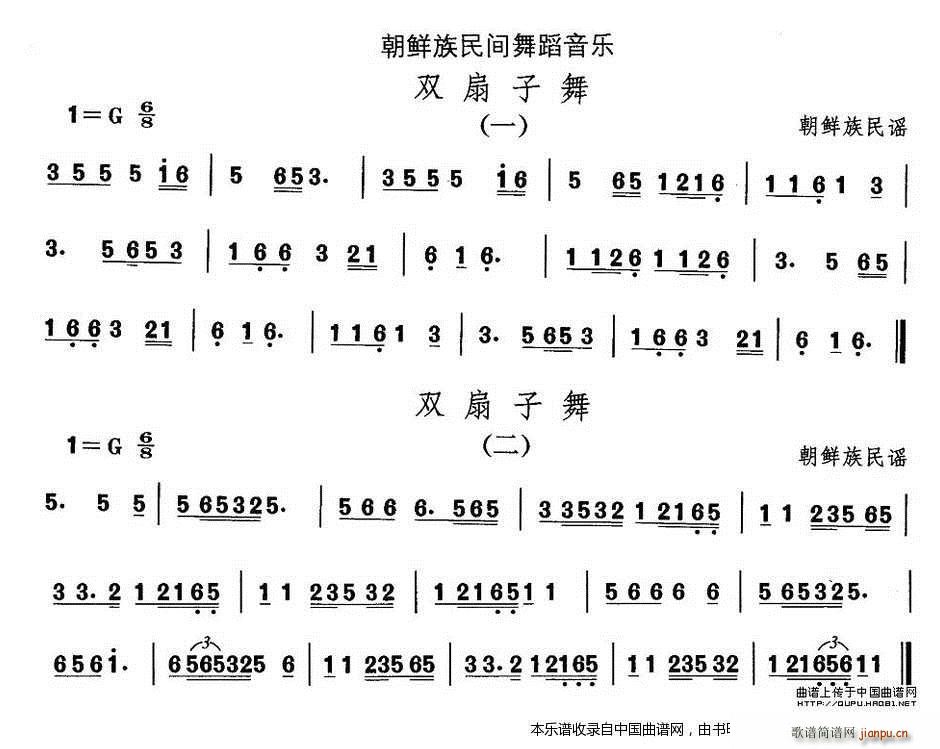 朝鲜族民间舞蹈音乐
双扇子舞
1=G 6/8
(一)
朝鲜族民谣
3 5 5 5 i6 | 5 653. | 3555 i6 | 5 65 1216 | 1161 3 |
3. 5653 | 166 3 21 | 6 16. | 1126 1126 | 3. 5 65 |
1663 21 | 6 16. | 1161 3 | 3. 5653 | 1663 21 | 6 16. ‖
双扇子舞
1=G 6/8
(二)
朝鲜族民谣
5. 5 5 | 565325. | 566 6. 565 | 3 33532 1 2165 | 11 23565 |
33.2 12165 | 11 23532 | 1216511 | 5666 6 | 565325. |
3 3
656i. | 6565325 6 | 11 23565 | 33.2 12165 | 11 23532 | 12165611 ‖
曲谱上传于中国曲谱网
HTTP://QUPU.HAO81.NET
本乐谱收录自中国曲谱网，由书
歌谱简谱网 jianpu.cn